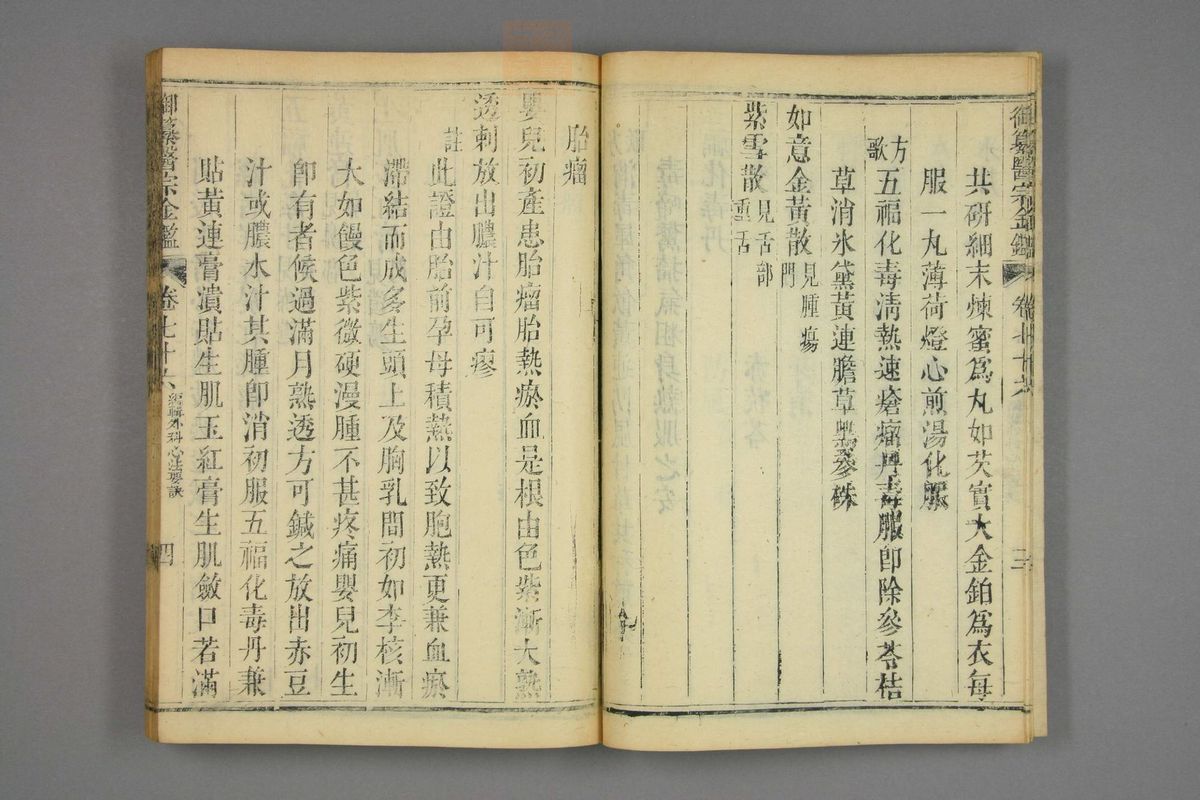 御纂醫宗金鑑
卷七十六
三
共研細末煉蜜爲丸如芡實大金鉑爲衣每
服一丸薄荷燈心煎湯化服
方歌
五福化毒淸熱速瘡瘤丹毒服卽除參苓桔
草消氷黛黃連膽草與參硃
如意金黃散見腫瘍門
紫雪散見舌部重舌
胎瘤
嬰兒初產患胎瘤胎熱瘀血是根由色紫漸大熟
透刺放出膿汁自可瘳
註
此證由胎前孕母積熱以致胞熱更兼血瘀
滯結而成多生頭上及胸乳間初如李核漸
大如饅色紫微硬漫腫不甚疼痛嬰兒初生
卽有者候過滿月熟透方可鍼之放出赤豆
汁或膿水汁其腫卽消初服五福化毒丹兼
貼黃連膏潰貼生肌玉紅膏生肌斂口若滿
御纂醫宗金鑑
卷七十六
編輯外科心法要訣
四